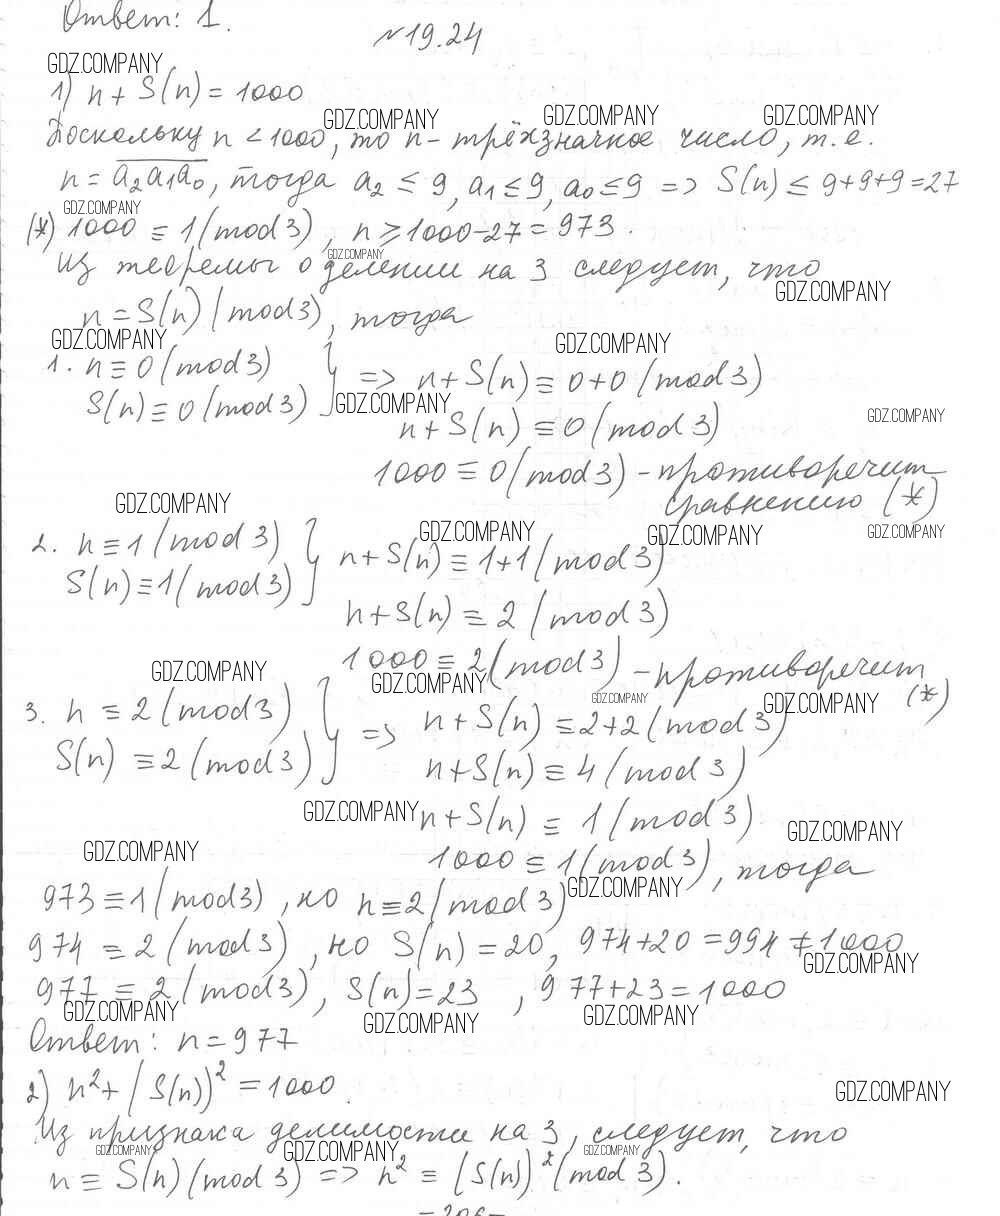 Ответ: 1.
№19.24
GDZ.COMPANY
1) n + S(n) = 1000
GDZ.COMPANY GDZ.COMPANY GDZ.COMPANY
Поскольку n < 1000, то n - трёхзначное число, т.е.
n = a₂a₁a₀, тогда a₂ ≤ 9, a₁ ≤ 9, a₀ ≤ 9 => S(n) ≤ 9+9+9=27
GDZ.COMPANY
(*) 1000 ≡ 1 (mod 3), n ≥ 1000-27 = 973.
GDZ.COMPANY
Из теоремы о делении на 3 следует, что
GDZ.COMPANY
n = S(n) (mod 3), тогда
GDZ.COMPANY GDZ.COMPANY
1. n ≡ 0 (mod 3)
S(n) ≡ 0 (mod 3) } => n + S(n) ≡ 0+0 (mod 3)
GDZ.COMPANY GDZ.COMPANY
n + S(n) ≡ 0 (mod 3)
1000 ≡ 0 (mod 3) - противоречит
сравнению (*)
GDZ.COMPANY GDZ.COMPANY GDZ.COMPANY GDZ.COMPANY
2. n ≡ 1 (mod 3)
S(n) ≡ 1 (mod 3) } n + S(n) ≡ 1+1 (mod 3)
n + S(n) ≡ 2 (mod 3)
1000 ≡ 2 (mod 3) - противоречит
(*)
GDZ.COMPANY GDZ.COMPANY GDZ.COMPANY GDZ.COMPANY
3. n ≡ 2 (mod 3)
S(n) ≡ 2 (mod 3) } => n + S(n) ≡ 2+2 (mod 3)
n + S(n) ≡ 4 (mod 3)
GDZ.COMPANY
n + S(n) ≡ 1 (mod 3)
GDZ.COMPANY GDZ.COMPANY
1000 ≡ 1 (mod 3), тогда
GDZ.COMPANY
973 ≡ 1 (mod 3), но n ≡ 2 (mod 3)
974 ≡ 2 (mod 3), но S(n) = 20, 974+20 = 994 ≠ 1000
GDZ.COMPANY
977 ≡ 2 (mod 3), S(n) = 23, 977+23 = 1000
GDZ.COMPANY GDZ.COMPANY GDZ.COMPANY
Ответ: n = 977
2) n² + (S(n))² = 1000.
GDZ.COMPANY
Из признака делимости на 3, следует, что
GDZ.COMPANY GDZ.COMPANY GDZ.COMPANY
n ≡ S(n) (mod 3) => n² ≡ (S(n))² (mod 3).